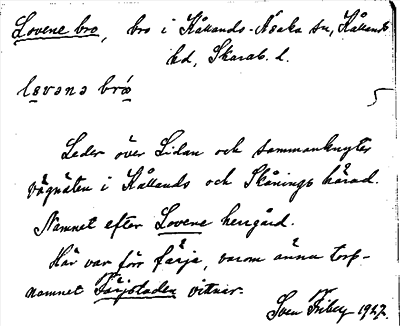 Lovene bro, bro i Kållands-Åsaka sn, Kållands
hd, Skarab. l.
lovənə brö
5
Leder över Lidan och sammanknyter
vägnäten i Kållands och Skånings härad.
Namnet efter Lovene herrgård.
Här var förr färja, varom ännu torp-
namnet Färjstaden vittnar.
Sven Friberg 1927.